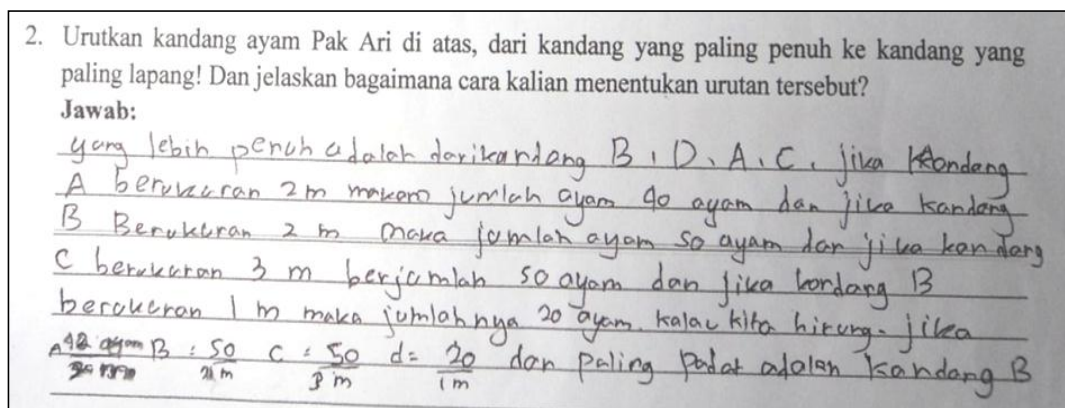 2. Urutkan kandang ayam Pak Ari di atas, dari kandang yang paling penuh ke kandang yang
paling lapang! Dan jelaskan bagaimana cara kalian menentukan urutan tersebut?
Jawab:
yang lebih penuh adalah dari kandang B, D, A, C. jika Kandang
A berukuran 2 m jumlah ayam 40 ayam dan jika kandang
B Berukuran 2 m maka jumlah ayam 50 ayam dan jika kandang
C berukuran 3 m berjumlah 50 ayam dan jika kandang B
berukuran 1 m maka jumlahnya 20 ayam. kalau kita hitung - jika
A ayam B = 50/2 m C = 50/3 m d = 20/1 m dan paling padat adalah kandang B